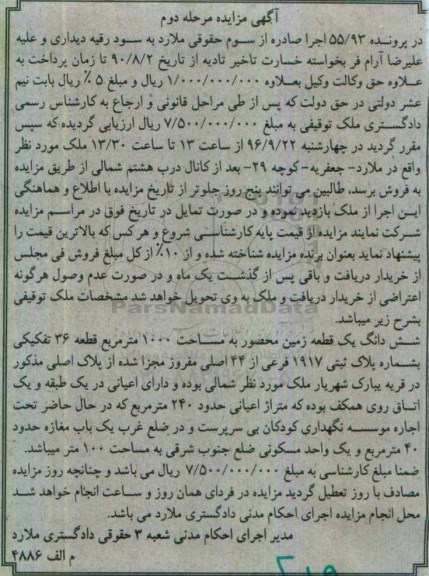 آگهی مزایده مرحله دوم
در پرونده ۵۵/۹۳ اجرا صادره از سوم حقوقی ملارد به سود رقیه دیداری و علیه
علیرضا آرام فر بخواسته خسارت تاخیر تادیه از تاریخ ۹۰/۸/۲ تا زمان پرداخت به
علاوه حق وکالت وکیل بعلاوه ۱/۰۰۰/۰۰۰/۰۰۰ ریال و مبلغ ۵٪ ریال بابت نیم
عشر دولتی در حق دولت که پس از طی مراحل قانونی و ارجاع به کارشناس رسمی
دادگستری ملک توقیفی به مبلغ ۷/۵۰۰/۰۰۰/۰۰۰ ریال ارزیابی گردیده که سپس
مقرر گردید در چهارشنبه ۹۶/۹/۲۲ از ساعت ۱۳ تا ساعت ۱۳/۳۰ ملک مورد نظر
واقع در ملارد- جعفریه- کوچه ۲۹- بعد از کانال درب هشتم شمالی از طریق مزایده
به فروش برسد، طالبین می توانند پنج روز جلوتر از تاریخ مزایده با اطلاع و هماهنگی
این اجرا از ملک بازدید نموده و در صورت تمایل در تاریخ فوق در مراسم مزایده
شرکت نمایند مزایده از قیمت پایه کارشناسی شروع و هر کس که بالاترین قیمت را
پیشنهاد نماید بعنوان برنده مزایده شناخته شده و از ۱۰٪ از کل مبلغ فروش فی مجلس
از خریدار دریافت و باقی پس از گذشت یک ماه و در صورت عدم وصول هرگونه
اعتراضی از خریدار دریافت و ملک به وی تحویل خواهد شد مشخصات ملک توقیفی
بشرح زیر میباشد.
ParsNamadData
شش دانگ یک قطعه زمین محصور به مساحت ۱۰۰۰ مترمربع قطعه ۳۶ تفکیکی
بشماره پلاک ثبتی ۱۹۱۷ فرعی از ۴۴ اصلی مفروز مجزا شده از پلاک اصلی مذکور
در قریه یبارک شهریار ملک مورد نظر شمالی بوده و دارای اعیانی در یک طبقه و یک
اتاق روی همکف بوده که متراژ اعیانی حدود ۲۴۰ مترمربع که در حال حاضر تحت
اجاره موسسه نگهداری کودکان بی سرپرست و در ضلع غرب یک باب مغازه حدود
۴۰ مترمربع و یک واحد مسکونی ضلع جنوب شرقی به مساحت ۱۰۰ متر میباشد.
ضمنا مبلغ کارشناسی به مبلغ ۷/۵۰۰/۰۰۰/۰۰۰ ریال می باشد و چنانچه روز مزایده
مصادف با روز تعطیل گردید مزایده در فردای همان روز و ساعت انجام خواهد شد
محل انجام مزایده اجرای احکام مدنی دادگستری ملارد می باشد.
مدیر اجرای احکام مدنی شعبه ۳ حقوقی دادگستری ملارد
م الف ۴۸۸۶